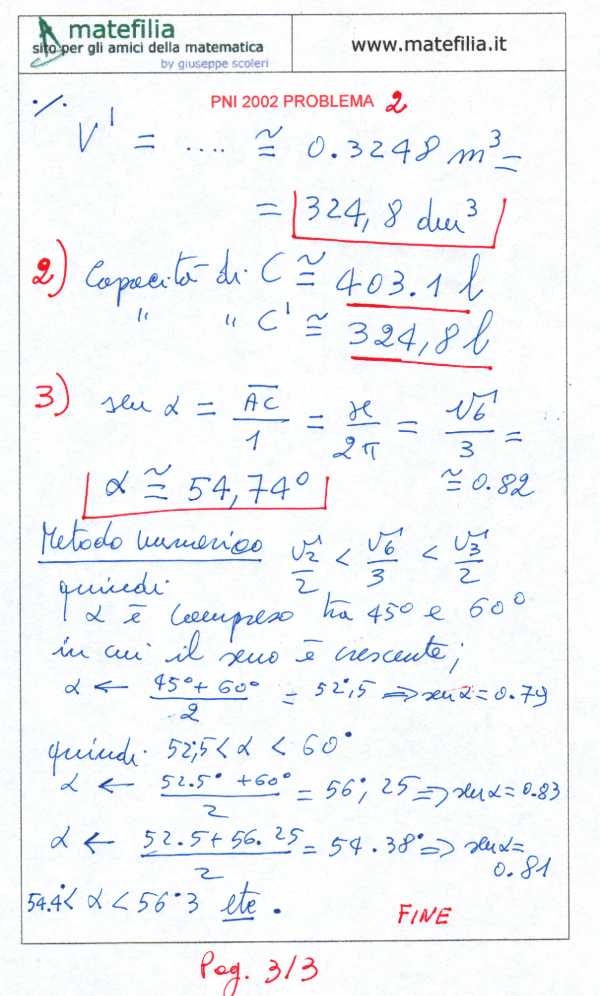 matefilia
sito per gli amici della matematica
by giuseppe scoleri
www.matefilia.it
PNI 2002 PROBLEMA 2
·/.
V' = .... ≅ 0.3248 m³ =
= 324,8 dm³
2) Capacità di C ≅ 403.1 l
" " C' ≅ 324,8 l
3) sen α = AC/1 = x/2π = √6/3 =
α ≅ 54,74° ≅ 0.82
Metodo numerico √2/2 < √6/3 < √3/2
quindi
α è compreso tra 45° e 60°
in cui il seno è crescente;
α ← (45° + 60°)/2 = 52°,5 ⇒ sen α = 0.79
quindi 52,5 < α < 60°
α ← (52.5° + 60°)/2 = 56°,25 ⇒ sen α = 0.83
α ← (52.5 + 56.25)/2 = 54.38° ⇒ sen α =
0.81
54.4° < α < 56°3 etc.
FINE
Pag. 3/3